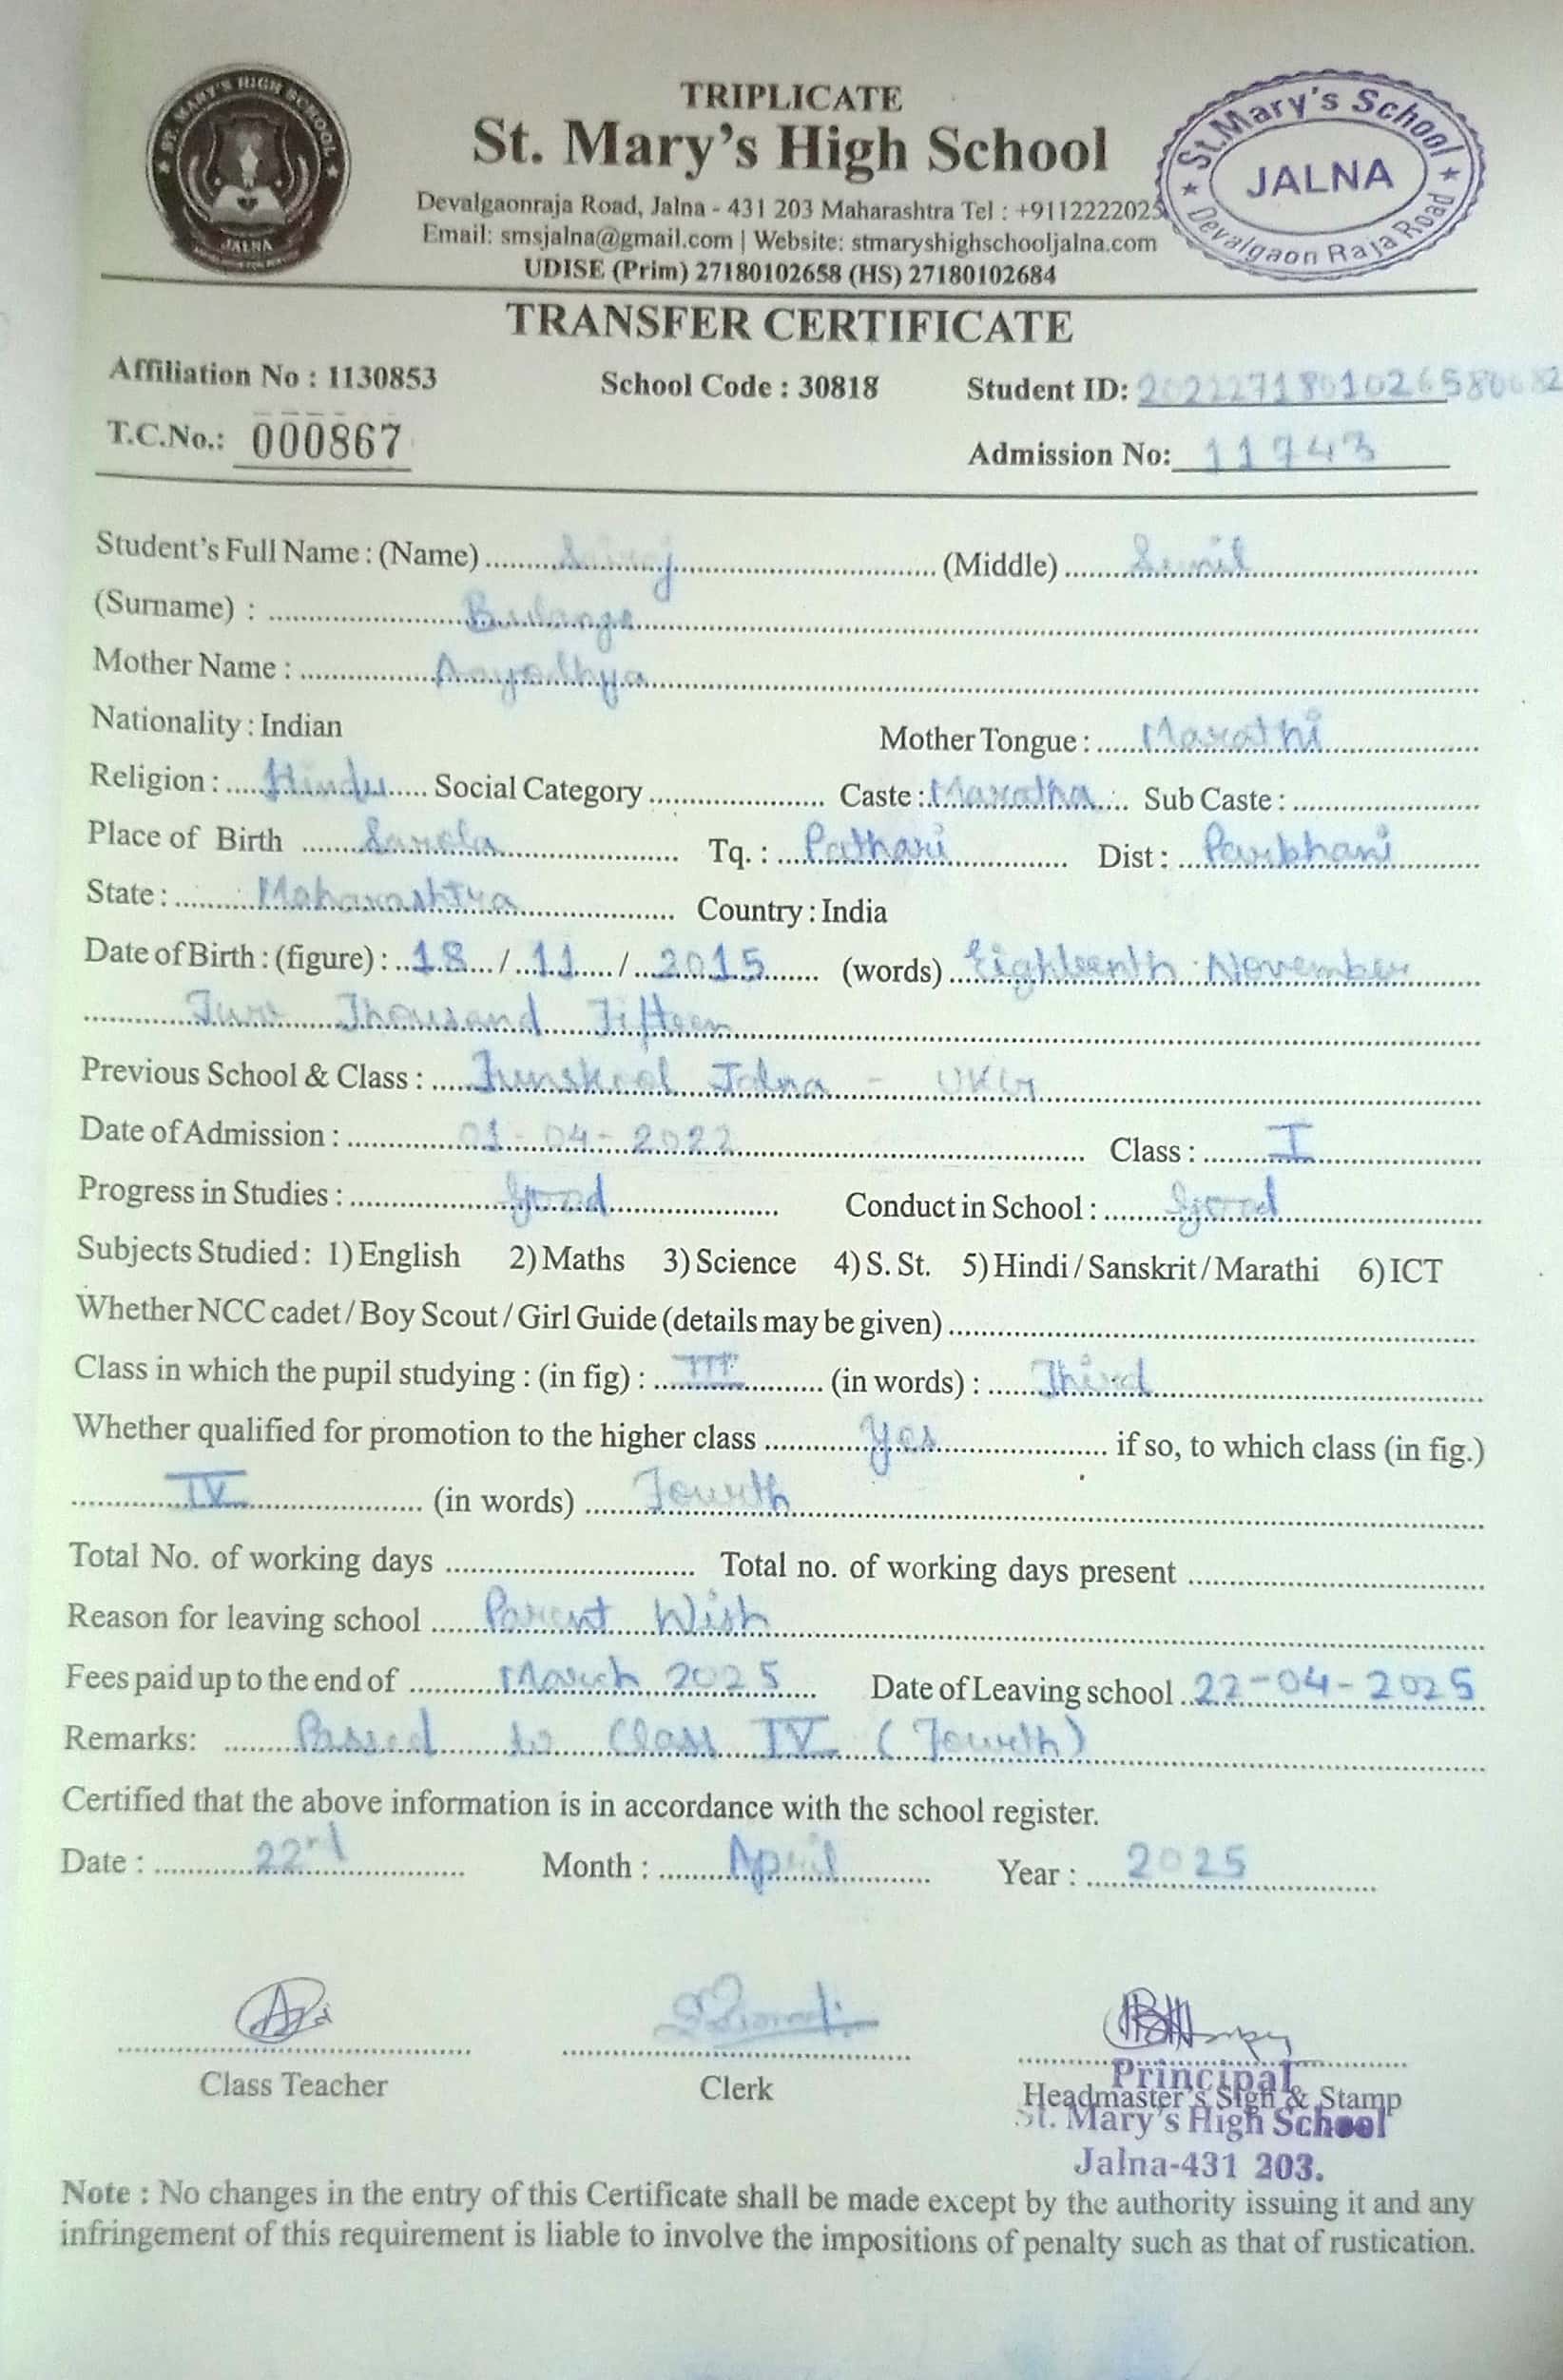 ST. MARY'S HIGH SCHOOL
JALNA
TRIPLICATE
St. Mary's High School
Devalgaonraja Road, Jalna - 431 203 Maharashtra Tel : +9112222025
Email: smsjalna@gmail.com | Website: stmaryshighschooljalna.com
UDISE (Prim) 27180102658 (HS) 27180102684
St. Mary's School
JALNA
Devalgaon Raja Road
TRANSFER CERTIFICATE
Affiliation No : 1130853 School Code : 30818 Student ID:
T.C.No.: 000867 Admission No: 11743
Student's Full Name : (Name) Sairaj (Middle) Sunil
(Surname) :
Mother Name :
Nationality : Indian Mother Tongue : Marathi
Religion : Hindu Social Category Caste : Maratha Sub Caste :
Place of Birth Tq. : Pathari Dist : Parbhani
State : Maharashtra Country : India
Date of Birth : (figure) : 18 / 11 / 2015 (words) Eighteenth November
Two Thousand Fifteen
Previous School & Class : Funskool Jalna - UKG
Date of Admission : 01-04-2022 Class : I
Progress in Studies : Good Conduct in School : Good
Subjects Studied : 1) English 2) Maths 3) Science 4) S. St. 5) Hindi / Sanskrit / Marathi 6) ICT
Whether NCC cadet / Boy Scout / Girl Guide (details may be given)
Class in which the pupil studying : (in fig) : III (in words) : Third
Whether qualified for promotion to the higher class yes if so, to which class (in fig.)
IV (in words) Fourth
Total No. of working days Total no. of working days present
Reason for leaving school Parent Wish
Fees paid up to the end of March 2025 Date of Leaving school 22-04-2025
Remarks: Passed to Class IV (Fourth)
Certified that the above information is in accordance with the school register.
Date : 22nd Month : April Year : 2025
Class Teacher Clerk Headmaster's Sign & Stamp
Principal
St. Mary's High School
Jalna-431 203.
Note : No changes in the entry of this Certificate shall be made except by the authority issuing it and any
infringement of this requirement is liable to involve the impositions of penalty such as that of rustication.